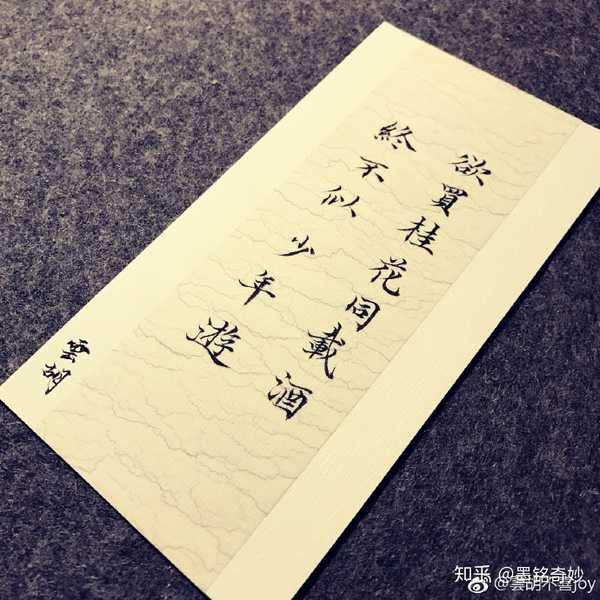 欲買桂花同載酒
終不似少年遊
雲胡
知乎 @墨铭奇妙
@雲胡不喜joy